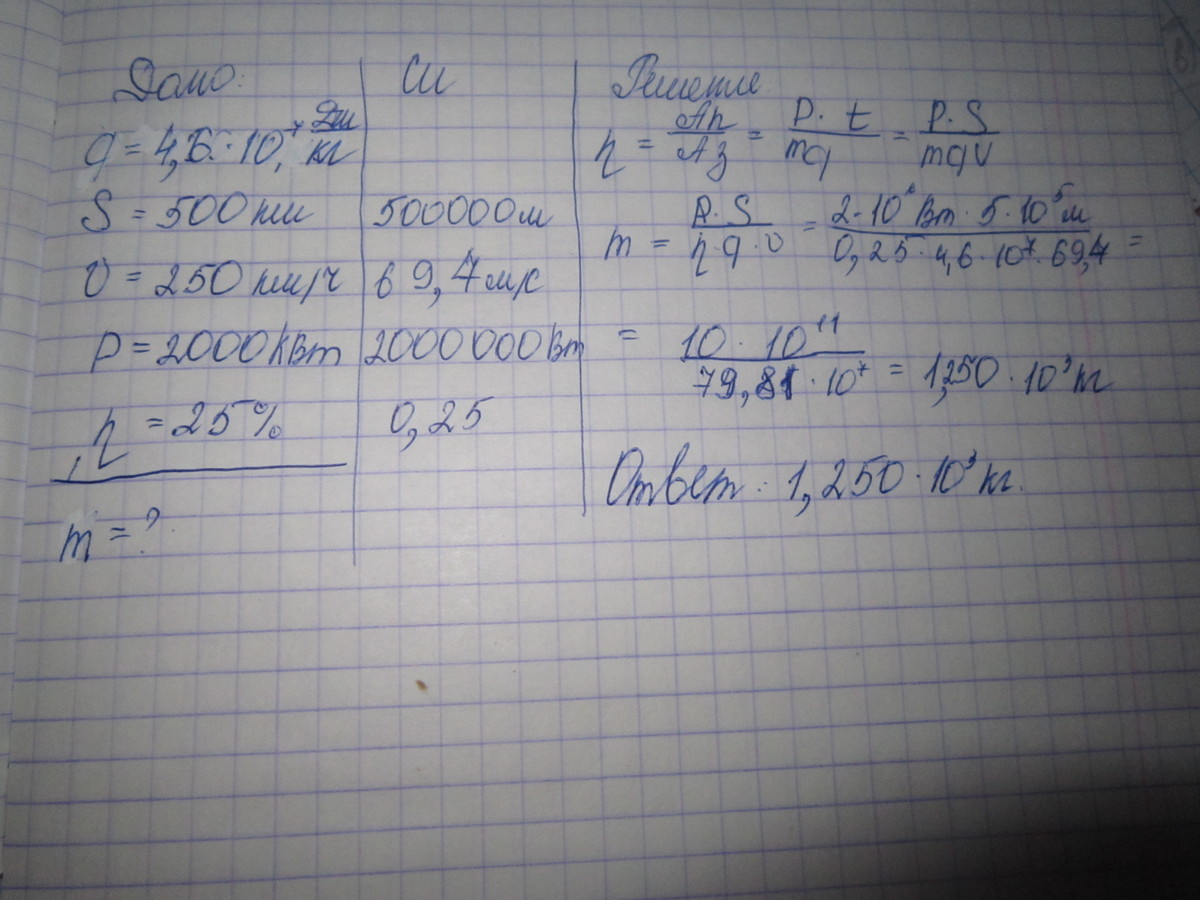 Дано:
q = 4,6·10⁷ Дж/кг
S = 500 км
υ = 250 км/ч
P = 2000 кВт
η = 25%
m = ?
Си
500000 м
69,4 м/с
2000000 Вт
0,25
Решение
η = Aп/Aз = P·t/mq = P·S/mqυ
m = P·S/η·q·υ = 2·10⁶ Вт·5·10⁵ м/0,25·4,6·10⁷·69,4 =
= 10·10¹¹/79,81·10⁷ = 1,250·10³ кг
Ответ: 1,250·10³ кг.